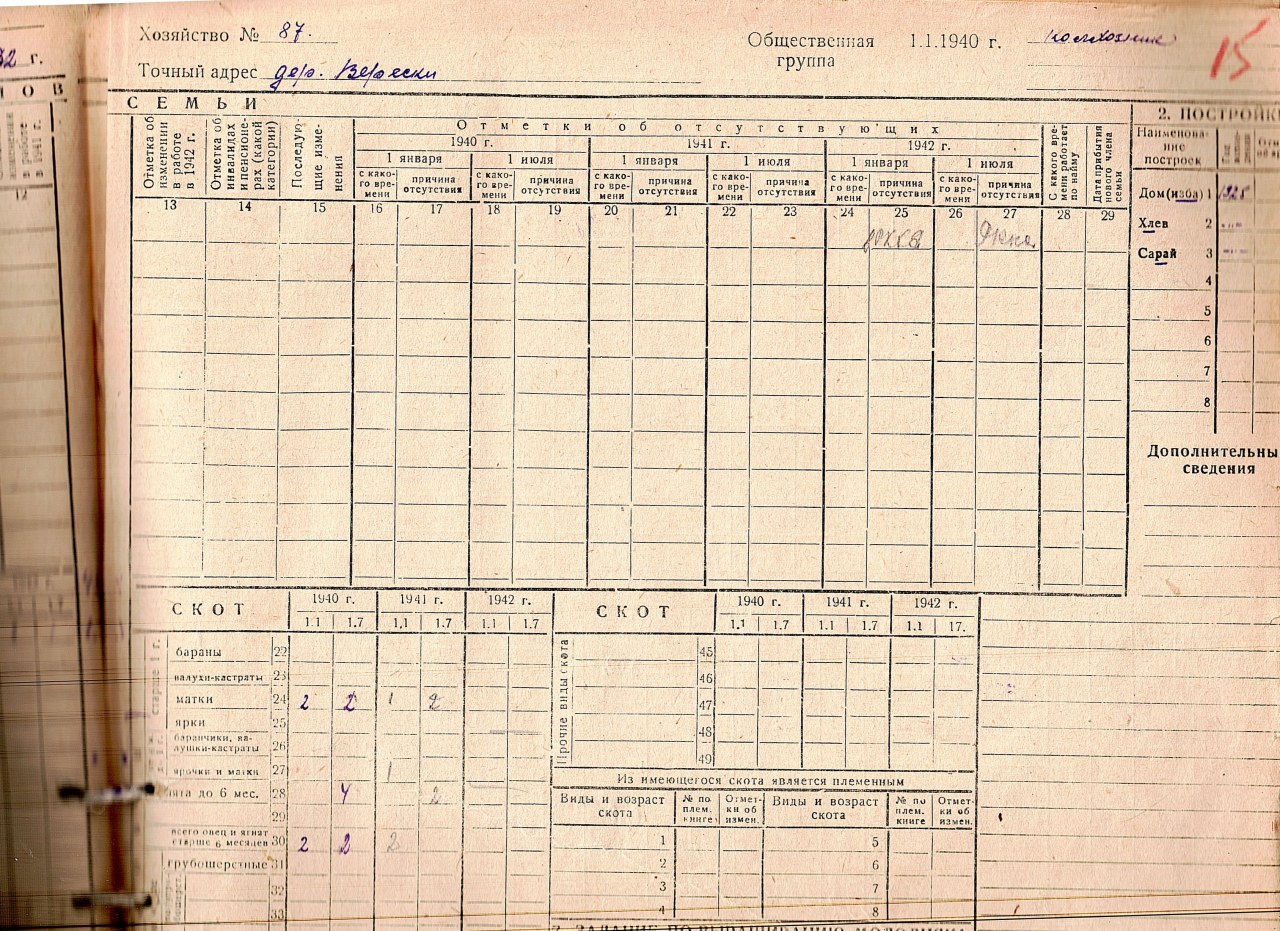 Хозяйство № 87.
Общественная группа 1.1.1940 г. колхозник
15
Точный адрес дер. Верески
32 г.
СЕМЬИ
2. ПОСТРОЙКИ
Отметка об изменении в работе в 1942 г.
Отметка об инвалидах и пенсионерах (какой категории)
Последующие изменения
Отметки об отсутствующих
1940 г. 1941 г. 1942 г.
1 января 1 июля 1 января 1 июля 1 января 1 июля
с како-го вре-мени причина отсутствия с како-го вре-мени причина отсутствия с како-го вре-мени причина отсутствия с како-го вре-мени причина отсутствия с како-го вре-мени причина отсутствия с како-го вре-мени причина отсутствия
С какого времени работает по найму
Дата прибытия нового члена семьи
Наименова-
ние
построек
12 13 14 15 16 17 18 19 20 21 22 23 24 25 26 27 28 29
РККА
Дом(изба) 1 1925
Хлев 2
Сарай 3
4
5
6
7
8
Дополнительны
сведения
СКОТ 1940 г. 1941 г. 1942 г.
1.1 1.7 1.1 1.7 1.1 1.7
старше 1 г.
бараны 22
валухи-кастраты 23
матки 24 2 2 1 2
ярки 25
баранчики, ва-
лушки-кастраты 26
ярочки и матки 27 1
ята до 6 мес. 28 4 2
29
всего овец и ягнят
старше 6 месяцев 30 2 2 2
грубошерстные 31
32
33
СКОТ 1940 г. 1941 г. 1942 г.
1.1 1.7 1.1 1.7 1.1 17.
Прочие виды скота
45
46
47
48
49
Из имеющегося скота является племенным
Виды и возраст скота № по плем. книге Отмет-ки об измен. Виды и возраст скота № по плем. книге Отмет-ки об измен.
1 5
2 6
3 7
4 8
7. ЗАДАНИЕ ПО ВЫРАЩИВАНИЮ МОЛОДНЯКА